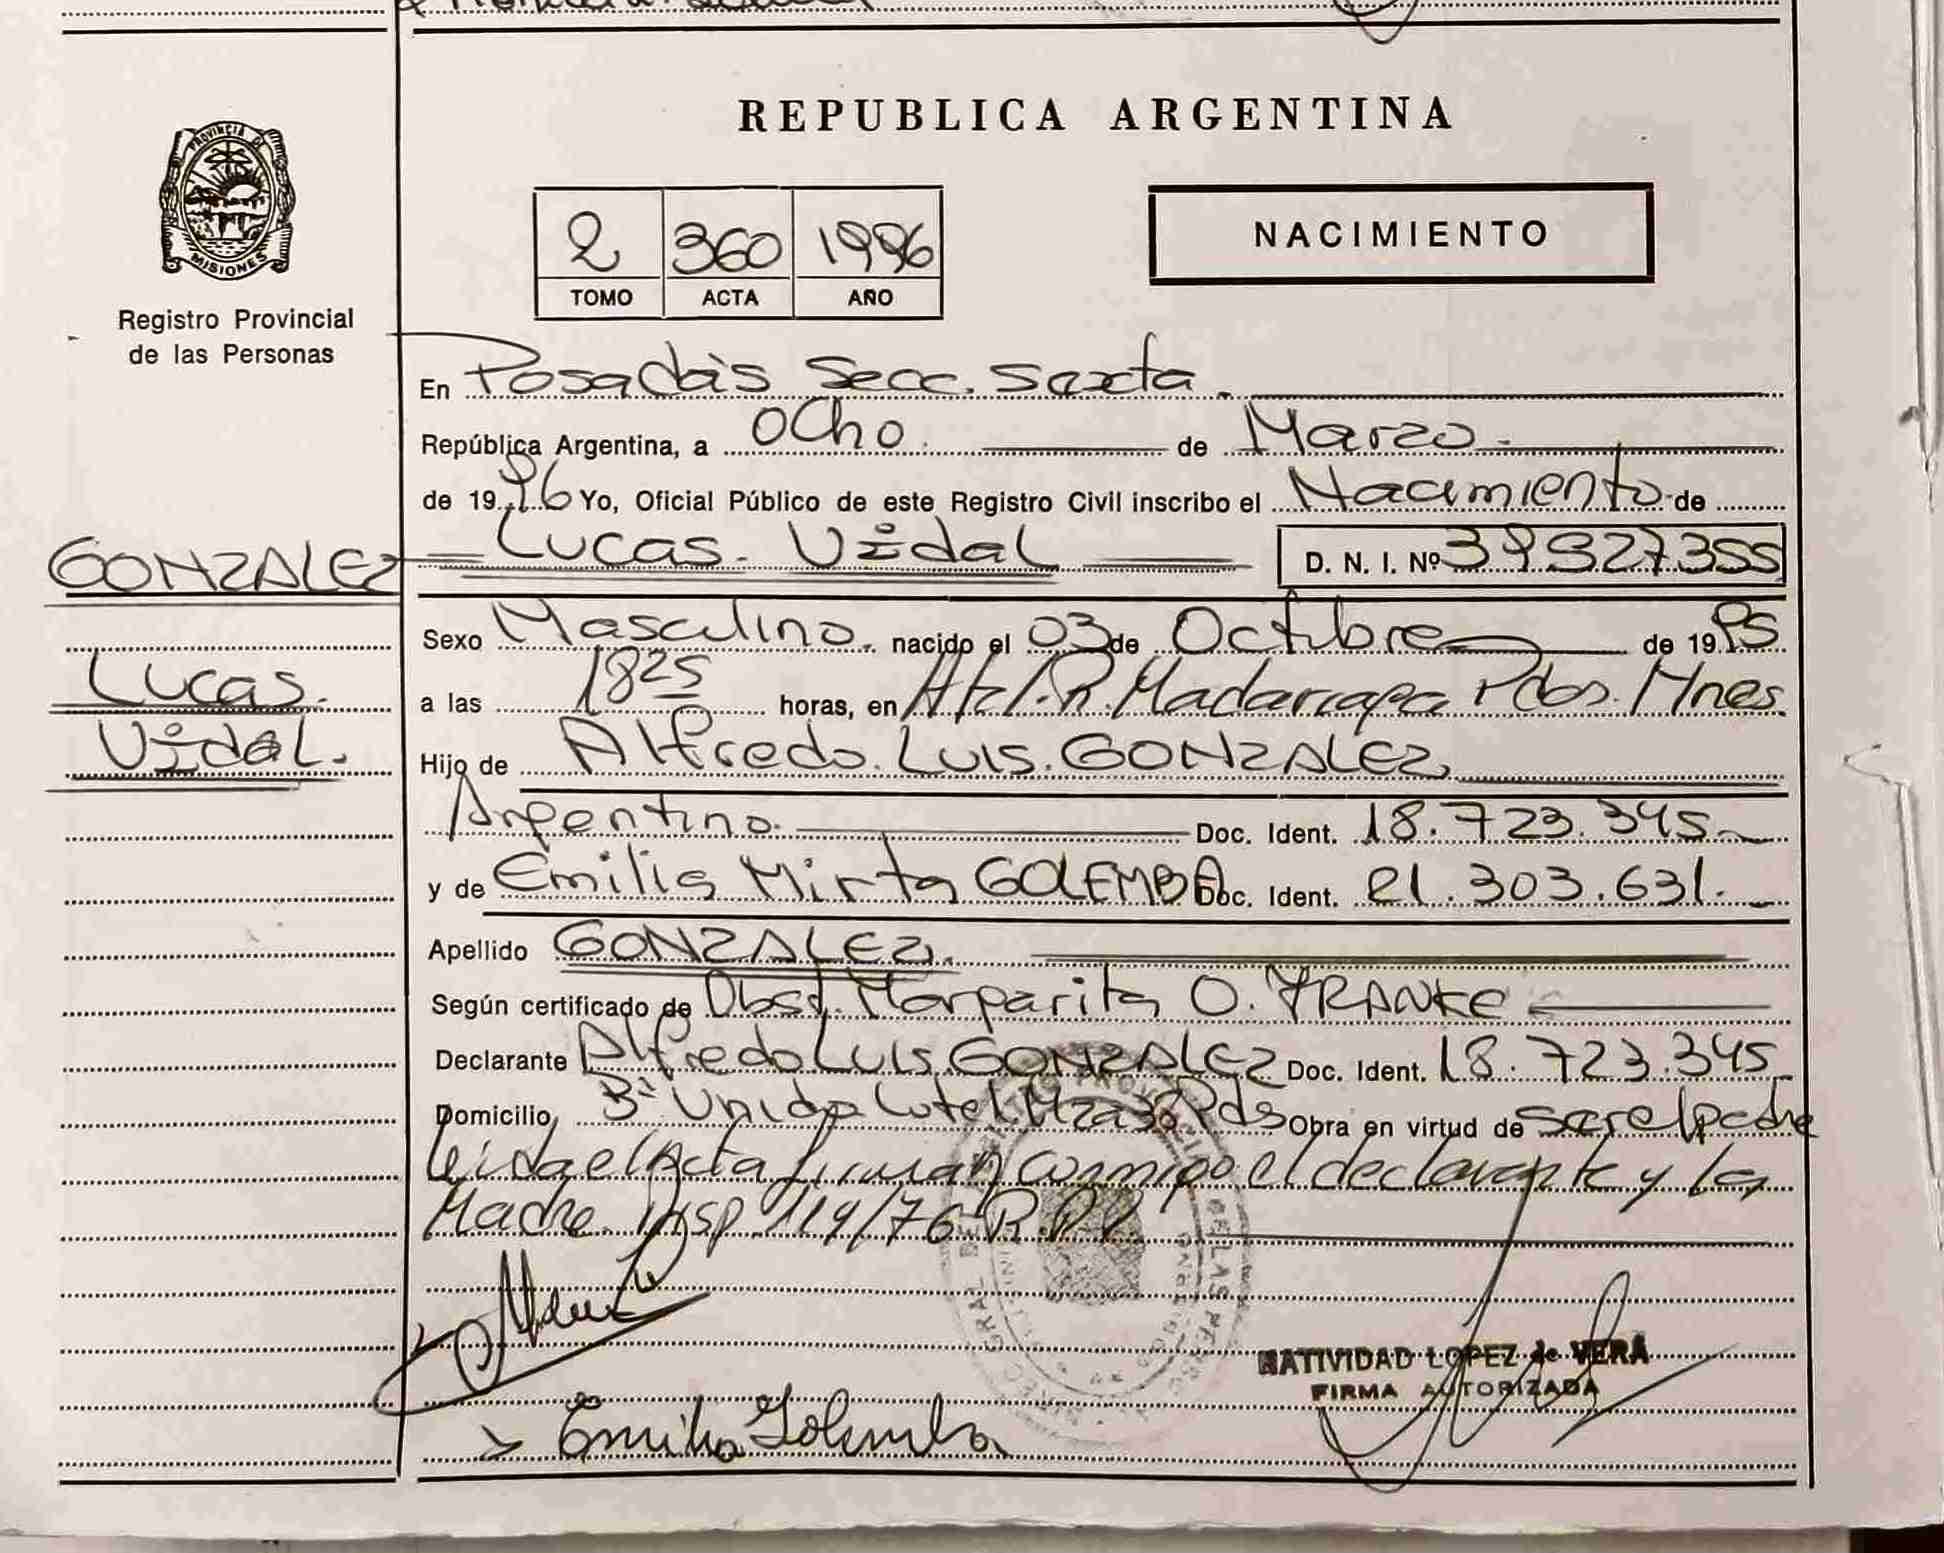 REPUBLICA ARGENTINA
PROVINCIA DE
MISIONES
Registro Provincial
de las Personas
2 360 1996
TOMO ACTA AÑO
NACIMIENTO
En Posadas Secc. Sexta.
República Argentina, a Ocho. de Marzo.
de 1996 Yo, Oficial Público de este Registro Civil inscribo el Nacimiento de
GONZALEZ Lucas. Vidal D. N. I. Nº 39527355
Lucas.
Vidal.
Sexo Masculino. nacido el 03 de Octubre de 1995
a las 1825 horas, en R. Madariaga Pdas. Mnes.
Hijo de Alfredo. Luis. GONZALEZ
Argentino. Doc. Ident. 18.723.345.
y de Emilia Mirta GOLEMBA Doc. Ident. 21.303.631.
Apellido GONZALEZ.
Según certificado de Obst. Margarita O. FRANKE
Declarante Alfredo Luis GONZALEZ Doc. Ident. 18.723.345
Domicilio, Bº Unido Pds Obra en virtud de ser el padre
leida el Acta firman conmigo el declarante y la
Madre. Disp. 119/76 R.P.P.
NATIVIDAD LOPEZ de VERA
FIRMA AUTORIZADA
Emilia Golemba